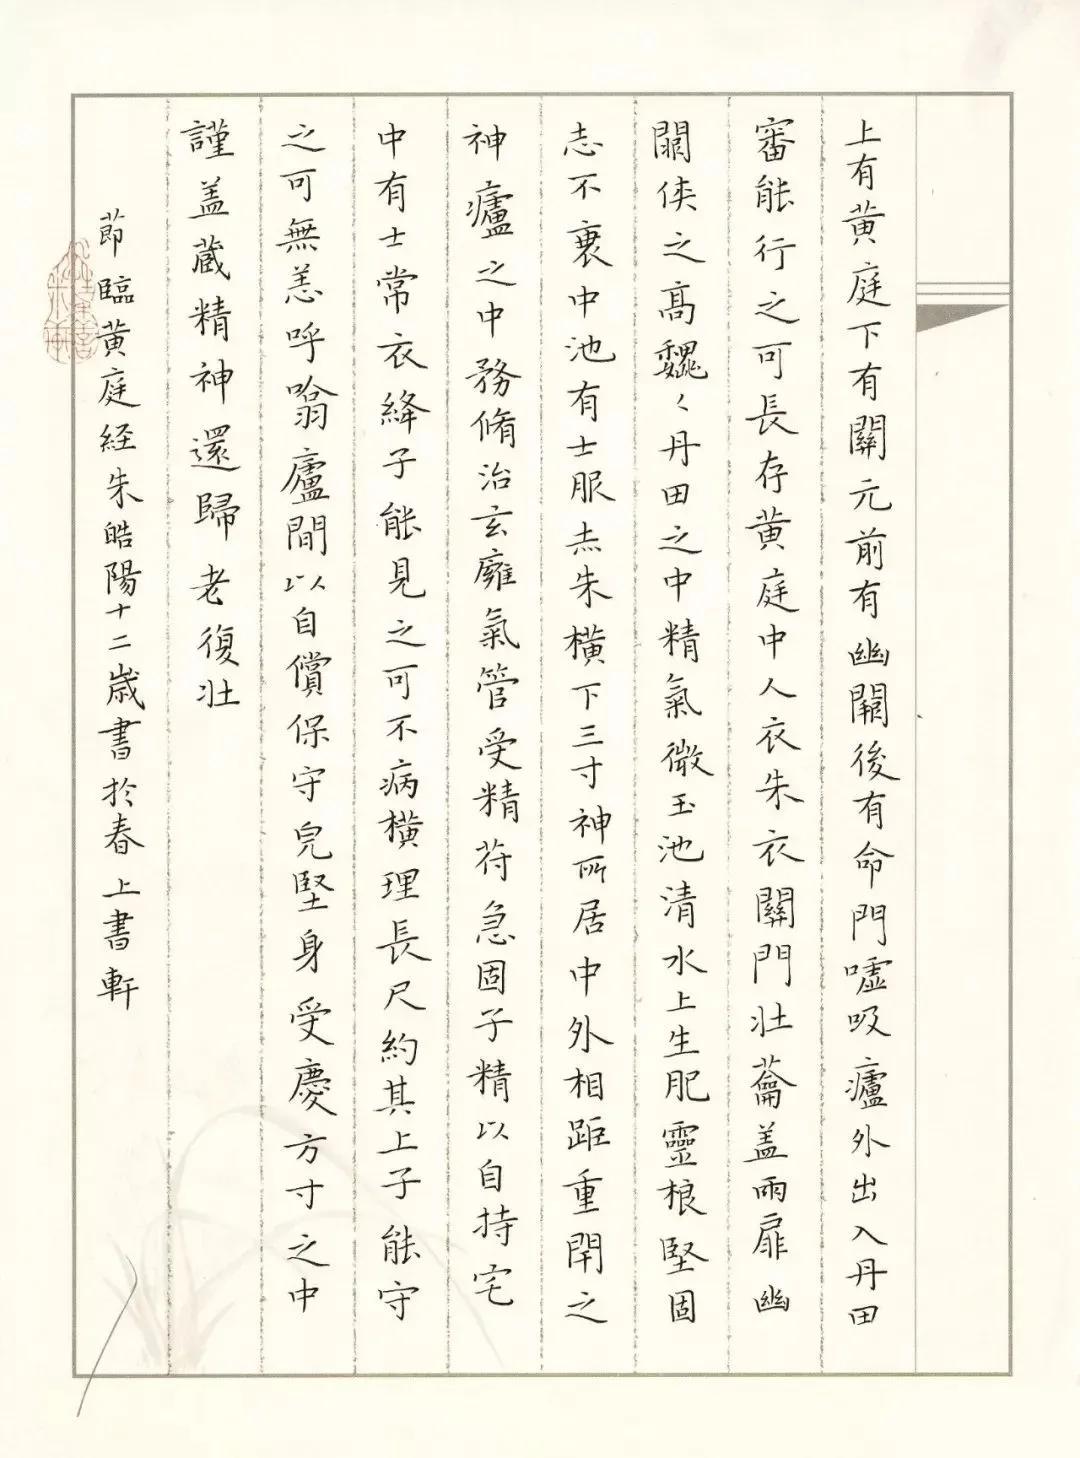 上有黄庭下有關元前有幽闕後有命門噓吸廬外出入丹田
審能行之可長存黄庭中人衣朱衣關門壯蘥盖兩扉幽
闕俠之高巍〻丹田之中精氣微玉池清水上生肥靈根堅固
志不衰中池有士服赤朱橫下三寸神所居中外相距重閇之
神廬之中務脩治玄癰氣管受精符急固子精以自持宅
中有士常衣絳子能見之可不病橫理長尺約其上子能守
之可無恙呼噏廬間以自償保守皃堅身受慶方寸之中
謹盖藏精神還歸老復壯
莭臨黄庭经朱皓陽十二歳書於春上書軒